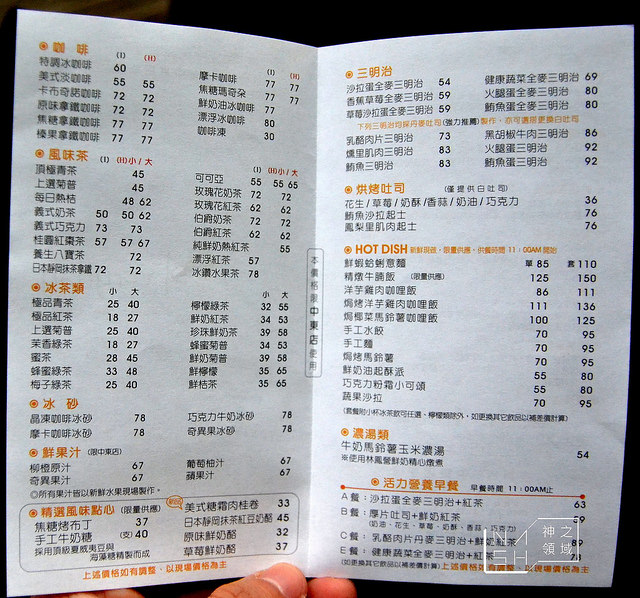 咖 啡 (I) (H)
特調冰咖啡 60
美式淡咖啡 55 55
卡布奇諾咖啡 72 72
原味拿鐵咖啡 72 72
焦糖拿鐵咖啡 77 77
榛果拿鐵咖啡 77 77
摩卡咖啡 77 77
焦糖瑪奇朵 77 77
鮮奶油冰咖啡 77
漂浮冰咖啡 80
咖啡凍 30
風味茶 (I) (H)小/大
頂極青茶 45
上選菊普 45
每日熱桔 48 62
義式奶茶 50 50 62
義式巧克力 73 73
桂圓紅棗茶 57 57 67
養生八寶茶 72
日本靜岡抹茶拿鐵 72 72
(I) (H)小/大
可可亞 55 55 65
玫瑰花奶茶 72 72
玫瑰花紅茶 62 62
伯爵奶茶 72 72
伯爵紅茶 62 62
純鮮奶熱紅茶 55
漂浮紅茶 57
冰鑽水果茶 78
冰茶類 小 大
極品青茶 25 40
極品紅茶 18 27
上選菊普 25 40
茉香綠茶 18 27
蜜茶 28 45
蜂蜜綠茶 33 48
梅子綠茶 25 40
小 大
檸檬綠茶 32 55
鮮奶紅茶 34 53
珍珠鮮奶茶 39 58
蜂蜜菊普 34 53
鮮奶菊普 39 58
鮮檸檬 35 65
鮮桔茶 35 65
冰 砂
晶凍咖啡冰砂 78
摩卡咖啡冰砂 78
巧克力牛奶冰砂 78
奇異果冰砂 78
鮮果汁 (限中東店)
柳橙原汁 67
奇異果汁 67
葡萄柚汁 67
蘋果汁 67
◎所有果汁皆以新鮮水果現場製作。
精選風味點心 (限量供應)
焦糖烤布丁 37
手工牛奶糖 (支) 40
採用頂級夏威夷豆與
海藻糖精製而成
美式糖霜肉桂卷 33
日本靜岡抹茶紅豆奶酪 45
原味鮮奶酪 32
草莓鮮奶酪 37
上述價格如有調整、以現場價格為主
本價格限中東店使用
三明治
沙拉蛋全麥三明治 54
香蕉草莓全麥三明治 59
草莓沙拉蛋全麥三明治 59
健康蔬菜全麥三明治 69
火腿蛋全麥三明治 80
鮪魚蛋全麥三明治 80
下列三明治均採丹麥吐司(強力推薦)製作，亦可選搭更換白吐司
乳酪肉片三明治 73
燻里肌肉三明治 83
鮪魚三明治 83
黑胡椒牛肉三明治 86
火腿蛋三明治 92
鮪魚蛋三明治 92
烘烤吐司 (僅提供白吐司)
花生/草莓/奶酥/香蒜/奶油/巧克力 36
鮪魚沙拉起士 76
鳳梨里肌肉起士 76
HOT DISH 新鮮現做，限量供應，供餐時間 11：00AM 開始
鮮蝦蛤蜊意麵 單 85 套 110
精燉牛腩飯 (限量供應) 125 150
洋芋雞肉咖哩飯 86 111
焗烤洋芋雞肉咖哩飯 111 136
焗椰菜馬鈴薯咖哩飯 100 125
手工水餃 70 95
手工麵 70 95
焗烤馬鈴薯 70 95
鮮奶油起酥派 55 80
巧克力粉霜小可頌 55 80
蔬果沙拉 70 95
(套餐附小杯冰茶飲可任選、檸檬類除外，如更換其它飲品以補差價計算)
濃湯類
牛奶馬鈴薯玉米濃湯 54
※使用林鳳營鮮奶精心燉煮
活力營養早餐 早餐時間 11：00AM止
A餐：沙拉蛋全麥三明治+紅茶 63
B餐：厚片吐司+鮮奶紅茶 59
(奶油、花生、草莓、奶酥、香蒜、巧克力)
C餐：乳酪肉片丹麥三明治+鮮奶紅茶 89
E餐：健康蔬菜全麥三明治+紅茶 78
(如更換其它飲品以補差價計算)上述價格如有調整、以現場價格為主
神之
領域